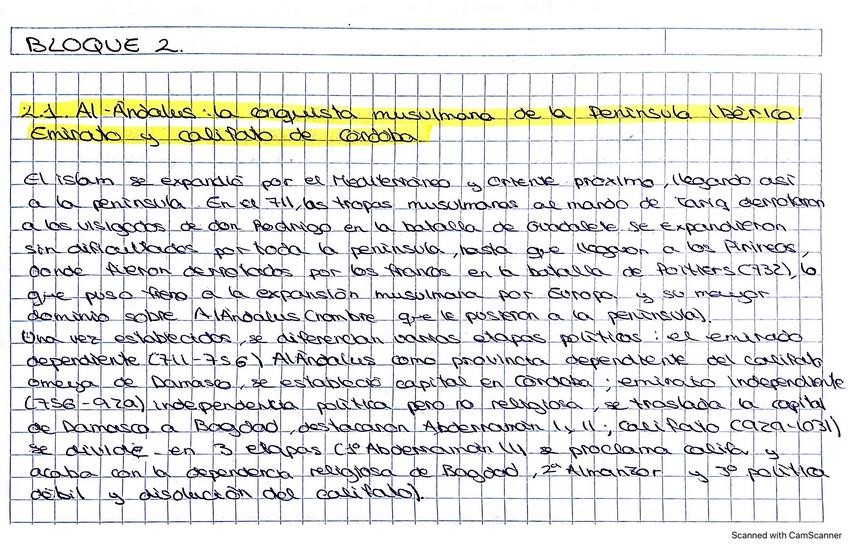 BLOQUE 2.
2.1. Al-Ándalus: la conquista musulmana de la Península Ibérica.
Emirato y califato de Córdoba.
El islam se expandió por el Mediterráneo y oriente próximo, llegando así
a la península. En el 711, las tropas musulmanas al mando de Tariq derrotaron
a los visigodos de don Rodrigo en la batalla de Guadalete se expandieron
sin dificultades por toda la península, hasta que llegaron a los Pirineos,
donde fueron derrotados por los francos en la batalla de Poitiers (732), lo
que puso freno a la expansión musulmana por Europa y su mayor
dominio sobre AlÁndalus (nombre que le pusieron a la península).
Una vez establecidos, se diferencian varias etapas políticas: el emirado
dependiente (711-756) AlÁndalus como provincia dependiente del califato
omeya de Damasco, se estableció capital en Córdoba; emirato independiente
(756-929) independencia política pero no religiosa, se traslada la capital
de Damasco a Bagdad, destacaron Abderramán I, II; califato (929-1031)
se divide en 3 etapas (1º Abderramán III se proclama califa y
acaba con la dependencia religiosa de Bagdad, 2º Almanzor y 3º política
débil y disolución del califato).
Scanned with CamScanner